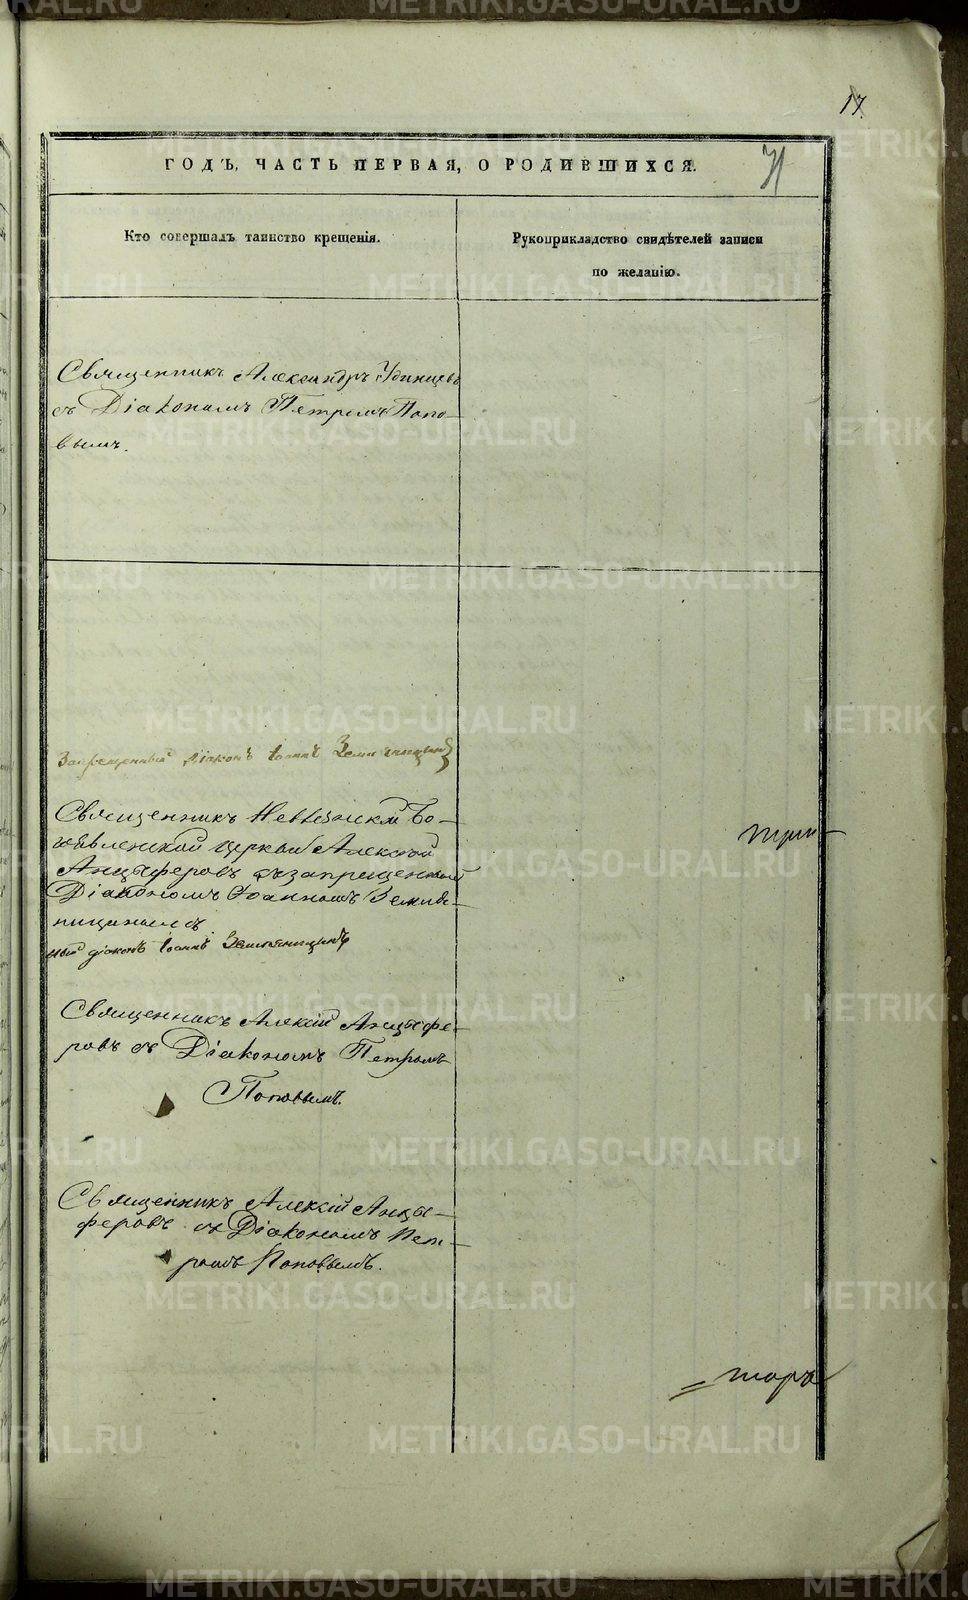 17
71
ГОДЪ, ЧАСТЬ ПЕРВАЯ, О РОДИВШИХСЯ.
Кто совершалъ таинство крещенія.
Рукоприкладство свидѣтелей записи
по желанію.
Священникъ Александръ Удинцевъ
съ Діакономъ Петромъ Попо-
вымъ.
Запрещенный діаконъ Іоаннъ Земляницынъ
Священникъ Невьянской Бо-
гоявленской церкви Алексій
Анцыферовъ съ запрещеннымъ
Діакономъ Іоанномъ Земля-
ницинымъ
ный діаконъ Іоаннъ Земляницинъ
Священникъ Алексій Анцыфе-
ровъ съ Діакономъ Петромъ
Поповымъ.
Священникъ Алексій Анцы-
феровъ съ Діакономъ Пет-
ромъ Поповымъ.
METRIKI.GASO-URAL.RU